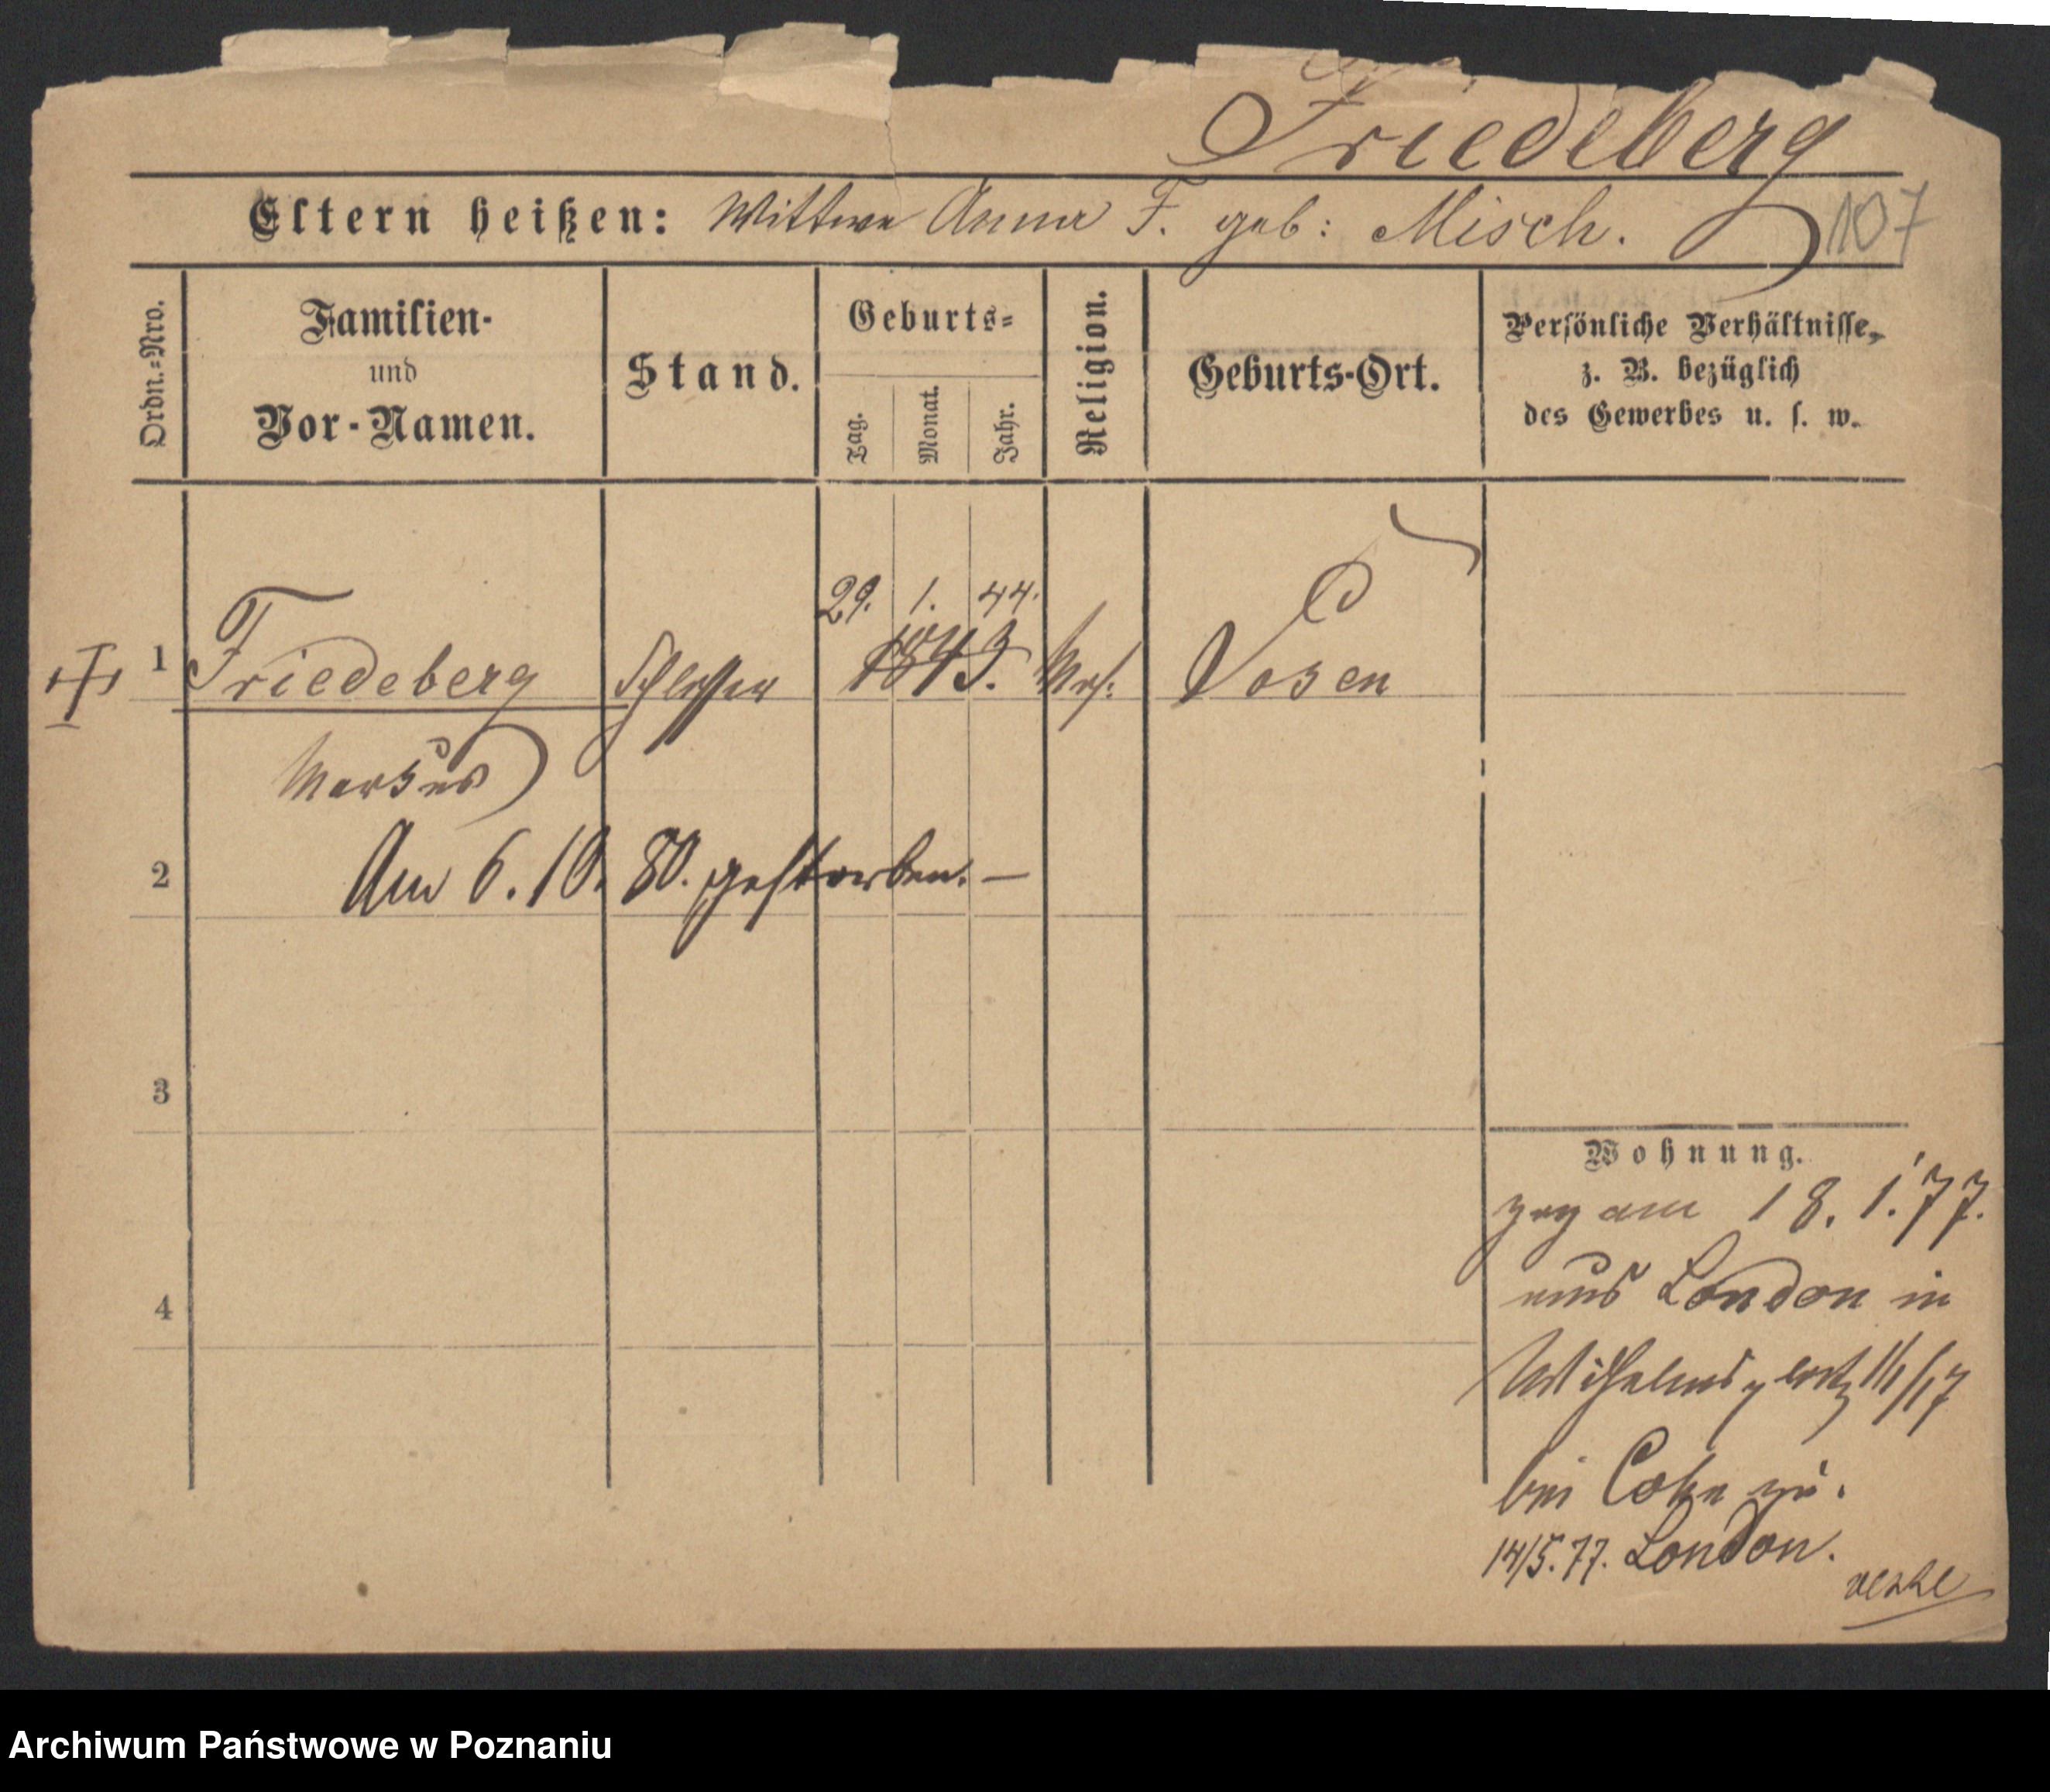 Friedeberg
Eltern heißen: Wittwe Anna F. geb: Misch.
107
Ordn.=Nro.
Familien-
und
Vor-Namen.
Stand.
Geburts=
Tag.
Monat.
Jahr.
Religion.
Geburts-Ort.
Persönliche Verhältnisse,
z. B. bezüglich
des Gewerbes u. s. w.
29. 1. 44.
1 Friedeberg Schlosser 1843. Mos: Posen
Markus
2 Am 6. 10. 80. gestorben. —
3
4
Wohnung.
zog am 18. 1. 77.
aus London in
Wilhelmsplatz
bei Cohn
14/5. 77. London.
Archiwum Państwowe w Poznaniu